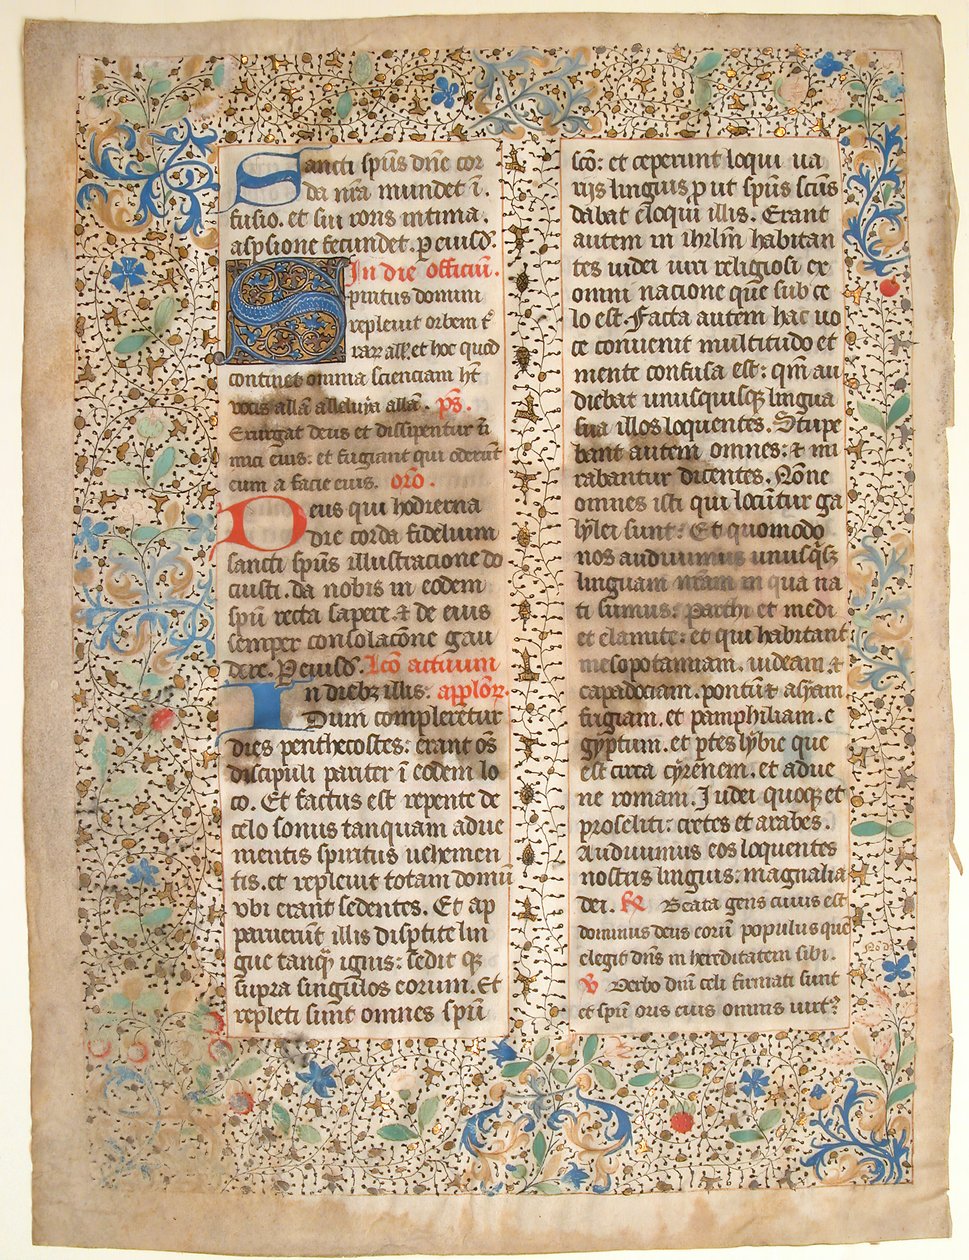 Sancti spūs dn̄e cor
da nr̄a mundet ī.
fusio. et sui roris intima.
aspsione fecundet. P eiusd̄.
In die officiū.
Spiritus domini
repleuit orbem t̄
rar all̄. et hoc quod
continet omnia scienciam ht̄
vocis allā alleluya allā. ps̄.
Exurgat deus et dissipentur īi
mici eius: et fugiant qui oderūt
eum a facie eius. orō.
Deus qui hodierna
die corda fidelium
sancti spūs illustracione do
cuisti. da nobis in eodem
spū recta sapere ⁊ de eius
semper consolacōne gau
dere. P eiusd̄. Lcō actuum
In diebꝫ illis: apl̄oꝝ.
Dum complerētur
dies penthecostes: erant oēs
discipuli pariter ī eodem lo
co. Et factus est repente de
celo sonus tanquam adue
nientis spiritus uehemen
tis. et repleuit totam domū
vbi erant sedentes. Et ap
paruerūt illis disptite lin
gue tanqꝫ ignis: sedit qꝫ
supra singulos eorum. Et
repleti sunt omnes spū
scō: et ceperunt loqui ua
rijs linguis ꝓ ut spūs scūs
dabat eloqui illis. Erant
autem in ihrl̄m habitan
tes iudei uiri religiosi ex
omni nacione que sub ce
lo est. Facta autem hac uo
ce conuenit multitudo et
mente confusa est: qm̄ au
diebat unusquisqꝫ lingua
sua illos loquentes. Stupe
bant autem omnes: ⁊ mi
rabantur dicentes. Nōne
omnes isti qui locūtur ga
lylei sunt: Et quomodo
nos audiuimus unusqꝫ
linguam nr̄am in qua na
ti sumus: Parthi et medi
et elamite: et qui habitant
mesopotamiam. iudeam ⁊
capadociam. pontū ⁊ asyam
frigiam. et pamphiliam. e
gyptum. et ꝑtes lybie que
est circa cyrenem. et adue
ne romani. Iudei quoqꝫ et
proseliti: cretes et arabes.
Audiuimus eos loquentes
nostris linguis: magnalia
dei. Beata gens cuius est
dominus deus eorū populus quē
elegit dn̄s in hereditatem sibi.
V Verbo dn̄i celi firmati sunt
et spū oris eius omnis uirt?